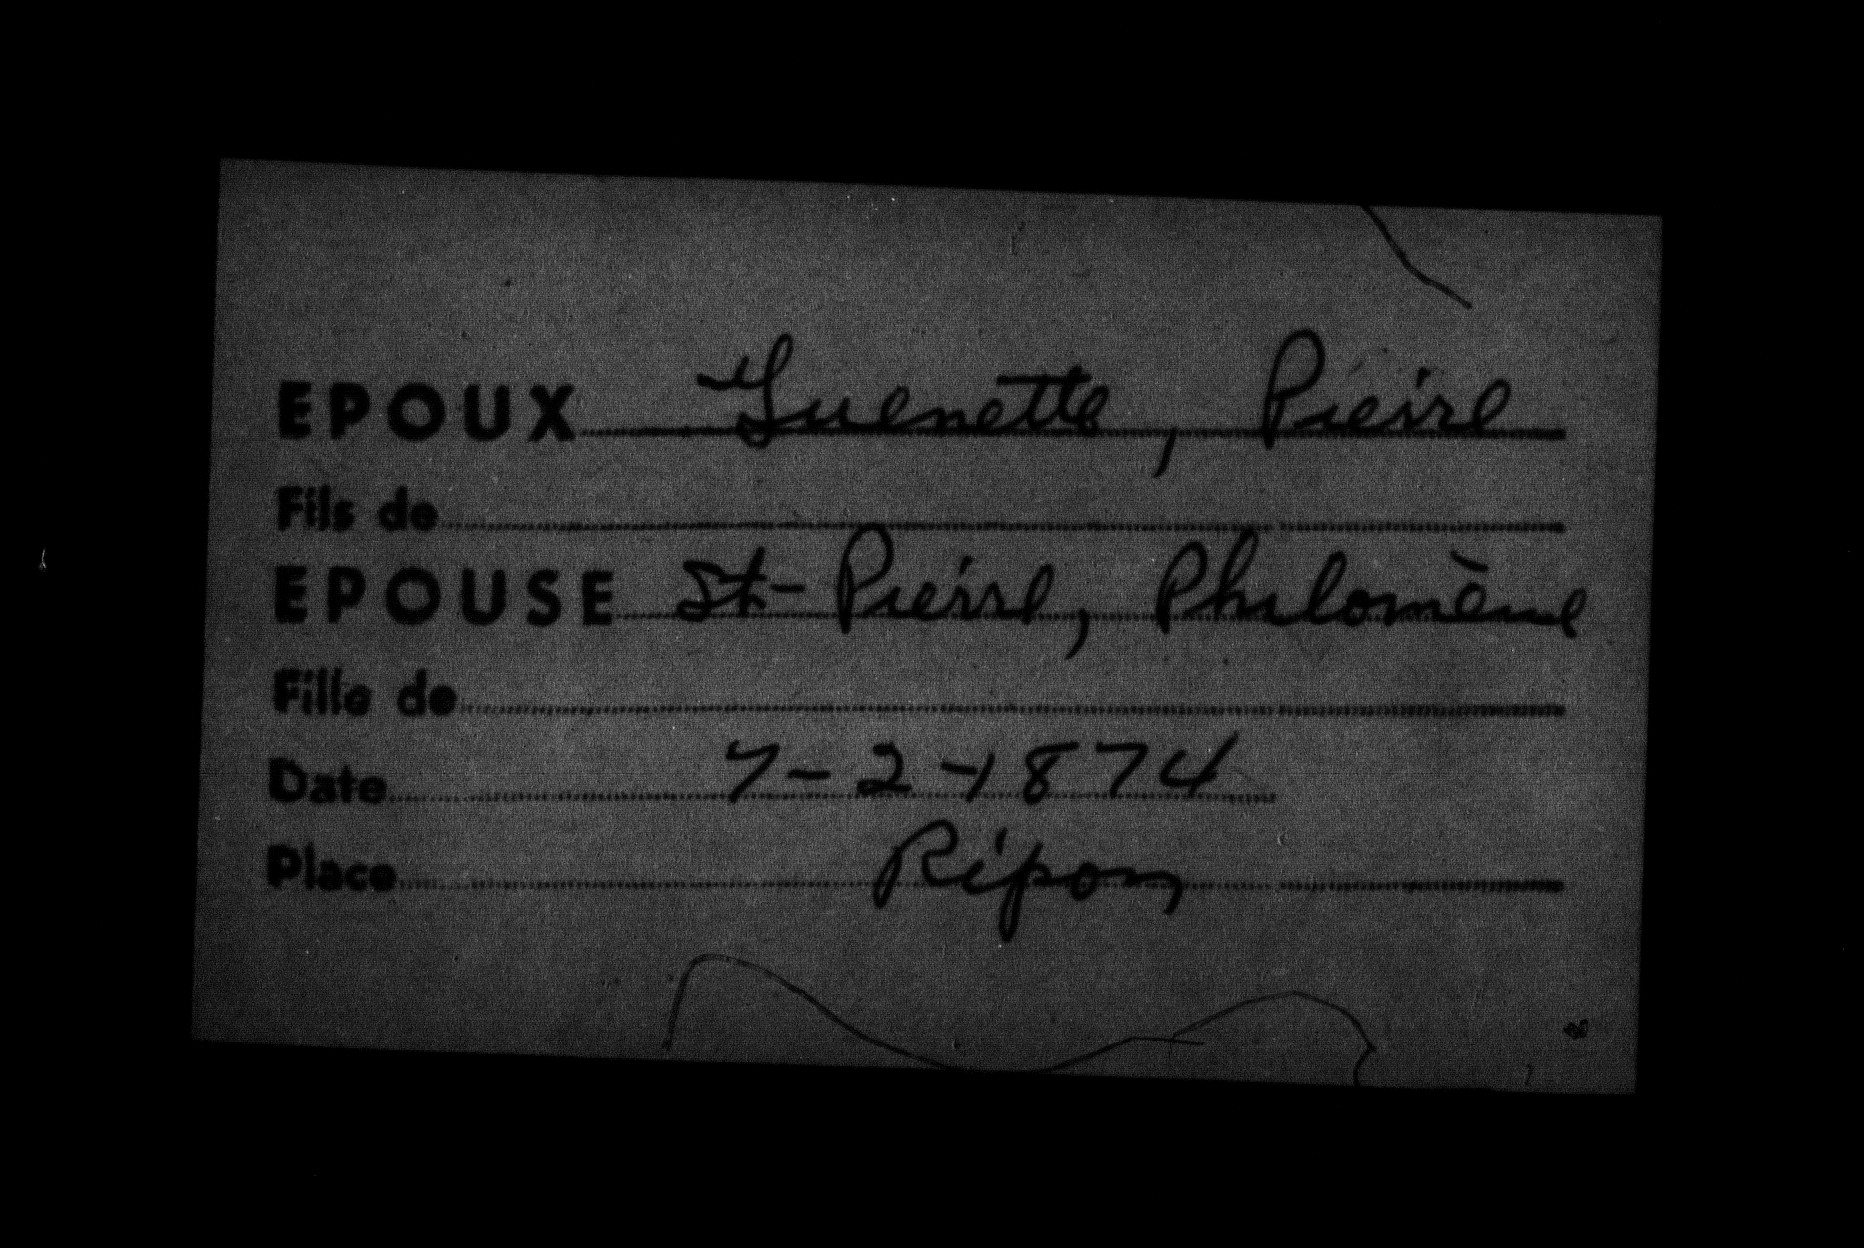 EPOUX Guenette, Pierre
Fils de
EPOUSE St-Pierre, Philomène
Fille de
Date 7-2-1874
Place Ripon